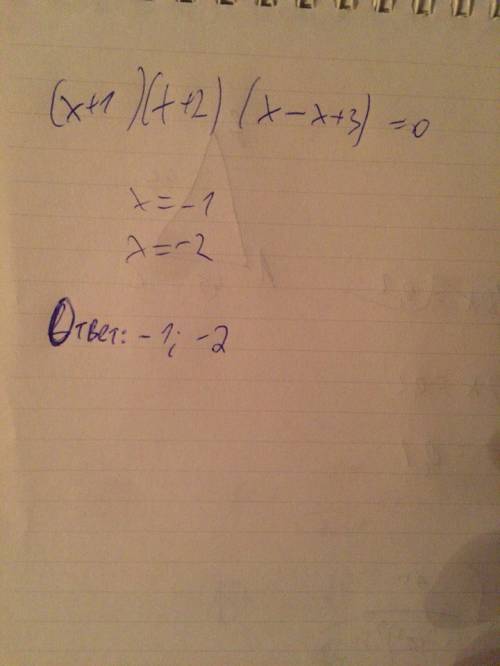 (x+1)(x+2)(x-x+3)=0
x=-1
x=-2
Ответ: -1; -2